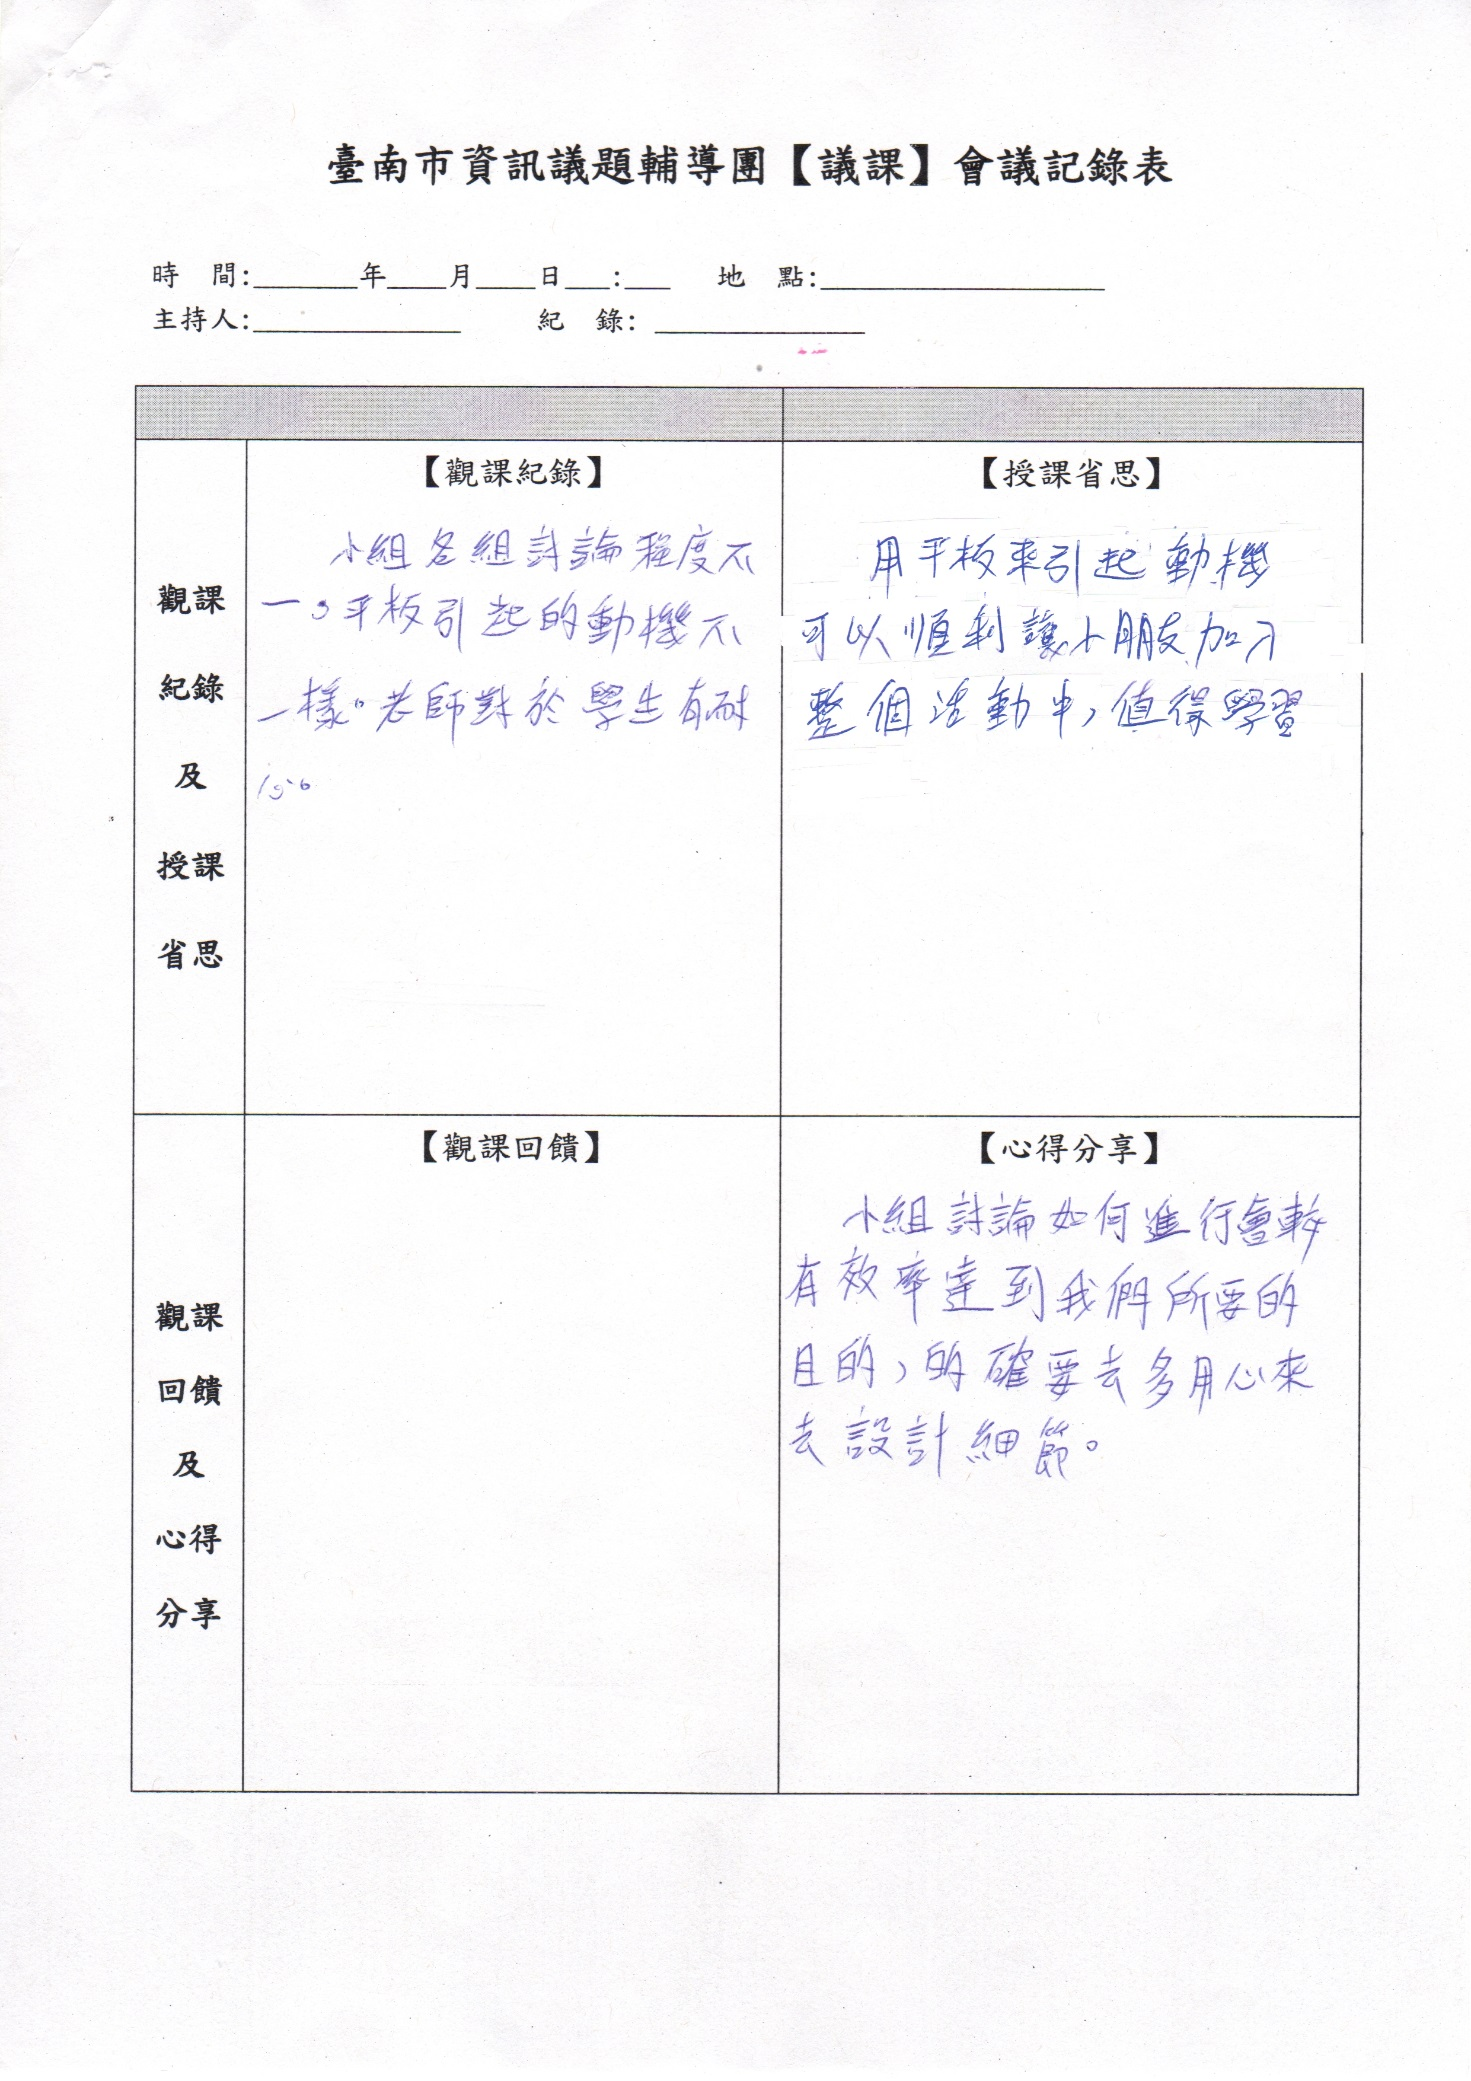 臺南市資訊議題輔導團【議課】會議記錄表
時　間:_______年____月____日___:___　地　點:___________________
主持人:______________　紀　錄: ______________
觀課
紀錄
及
授課
省思
【觀課紀錄】
小組各組討論程度不
一，平板引起的動機不
一樣。老師對於學生有耐
心。
【授課省思】
用平板來引起動機
可以順利讓小朋友加入
整個活動中，值得學習
觀課
回饋
及
心得
分享
【觀課回饋】
【心得分享】
小組討論如何進行會較
有效率達到我們所要的
目的，的確要去多用心來
去設計細節。